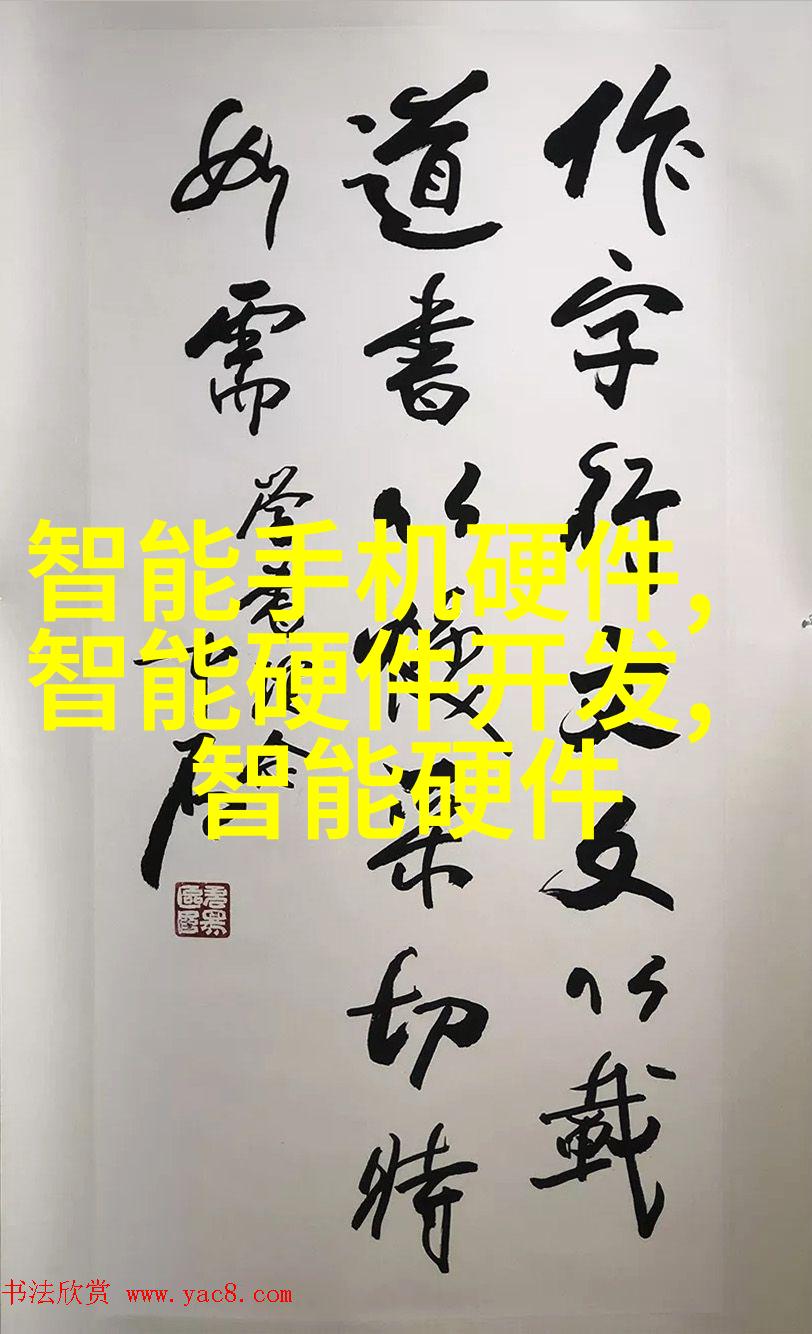 作字行文文以載
道書以焕采切時
如需
智能手机硬件，
智能硬件开发，
智能硬件
书法欣赏 www.yac8.com